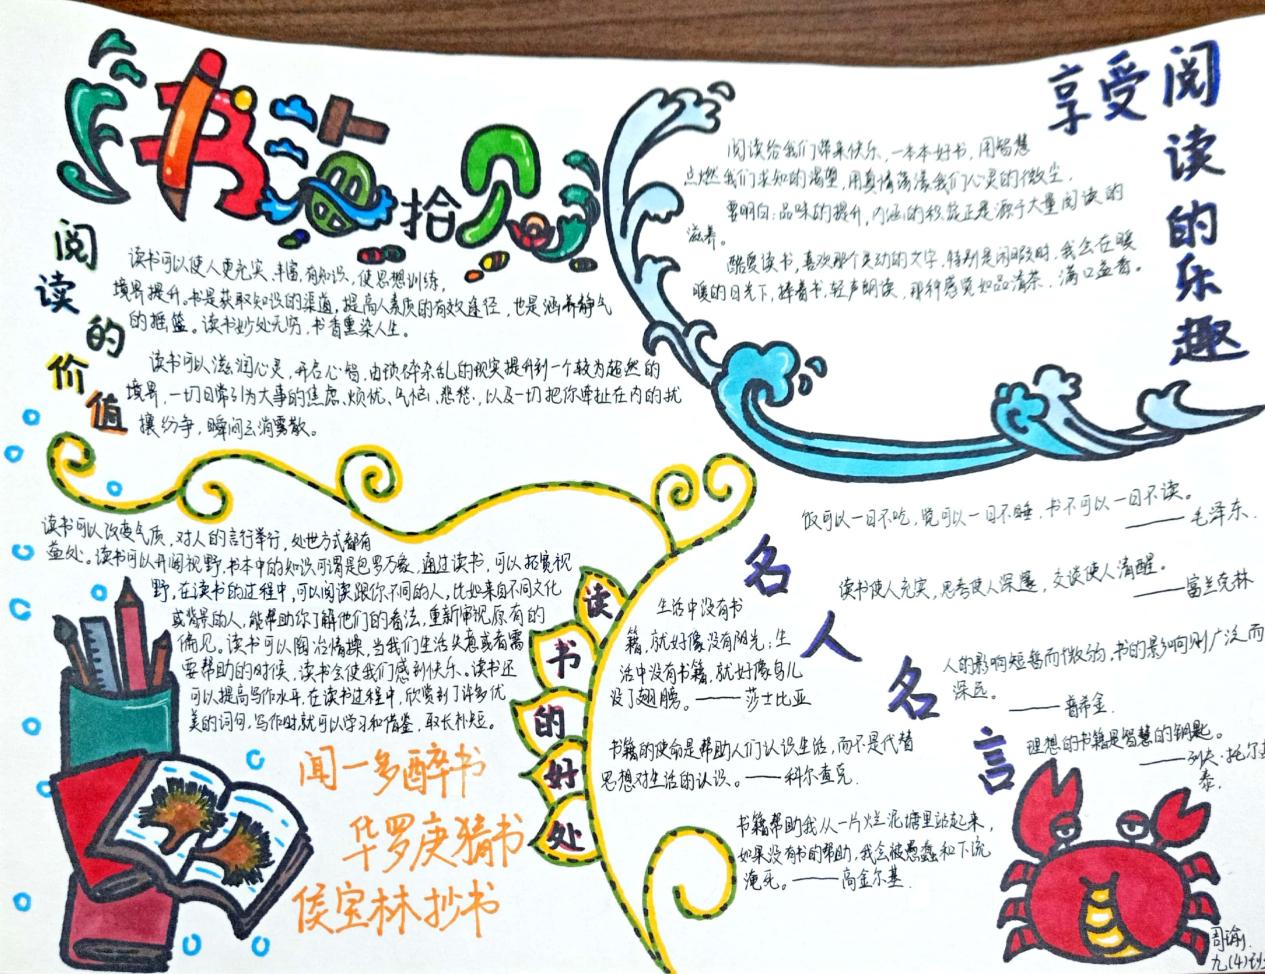 书海拾贝
阅读的价值
读书可以使人更充实,丰富,有知识,使思想训练,
境界提升。书是获取知识的渠道,提高人素质的有效途径,也是涵养静气
的摇篮。读书妙处无穷,书香熏染人生。
读书可以滋润心灵,开启心智,由琐碎杂乱的现实提升到一个较为超然的
境界,一切日常引为大事的焦虑、烦忧、气恼、悲愁,以及一切把你牵扯在内的扰
攘纷争,瞬间云消雾散。
享受阅读的乐趣
阅读给我们带来快乐,一本本好书,用智慧
点燃我们求知的渴望,用真情荡涤我们心灵的微尘.
要明白:品味的提升,内涵的积淀正是源于大量阅读的
滋养。
酷爱读书,喜欢那个灵动的文字,特别是闲暇时,我会在暖
暖的日光下,捧着书,轻声朗读,那种感觉如品清茶,满口益香。
读书可以改变气质,对人的言行举行,处世方式都有
益处。读书可以开阔视野,书本中的知识可谓是包罗万象,通过读书,可以拓宽视
野,在读书的过程中,可以阅读跟你不同的人,比如来自不同文化
或背景的人,能帮助你了解他们的看法,重新审视原有的
偏见。读书可以陶冶情操,当我们生活失意或者需
要帮助的时候,读书会使我们感到快乐。读书还
可以提高写作水平,在读书过程中,欣赏到了许多优
美的词句,写作时,就可以学习和借鉴,取长补短。
读书的好处
闻一多醉书
华罗庚猜书
侯宝林抄书
名人名言
饭可以一日不吃,觉可以一日不睡,书不可以一日不读。
——毛泽东.
读书使人充实,思考使人深邃,交谈使人清醒。
——富兰克林
人的影响短暂而微弱,书的影响则广泛而
深远。
——普希金.
理想的书籍是智慧的钥匙。
——列夫·托尔斯
泰.
生活中没有书
籍,就好像没有阳光;生
活中没有书籍,就好像鸟儿
没了翅膀。——莎士比亚
书籍的使命是帮助人们认识生活,而不是代替
思想对生活的认识。——科尔查克.
书籍帮助我从一片烂泥塘里站起来,
如果没有书的帮助,我会被愚蠢和下流
淹死。——高尔基.
周瑜.
九(4)